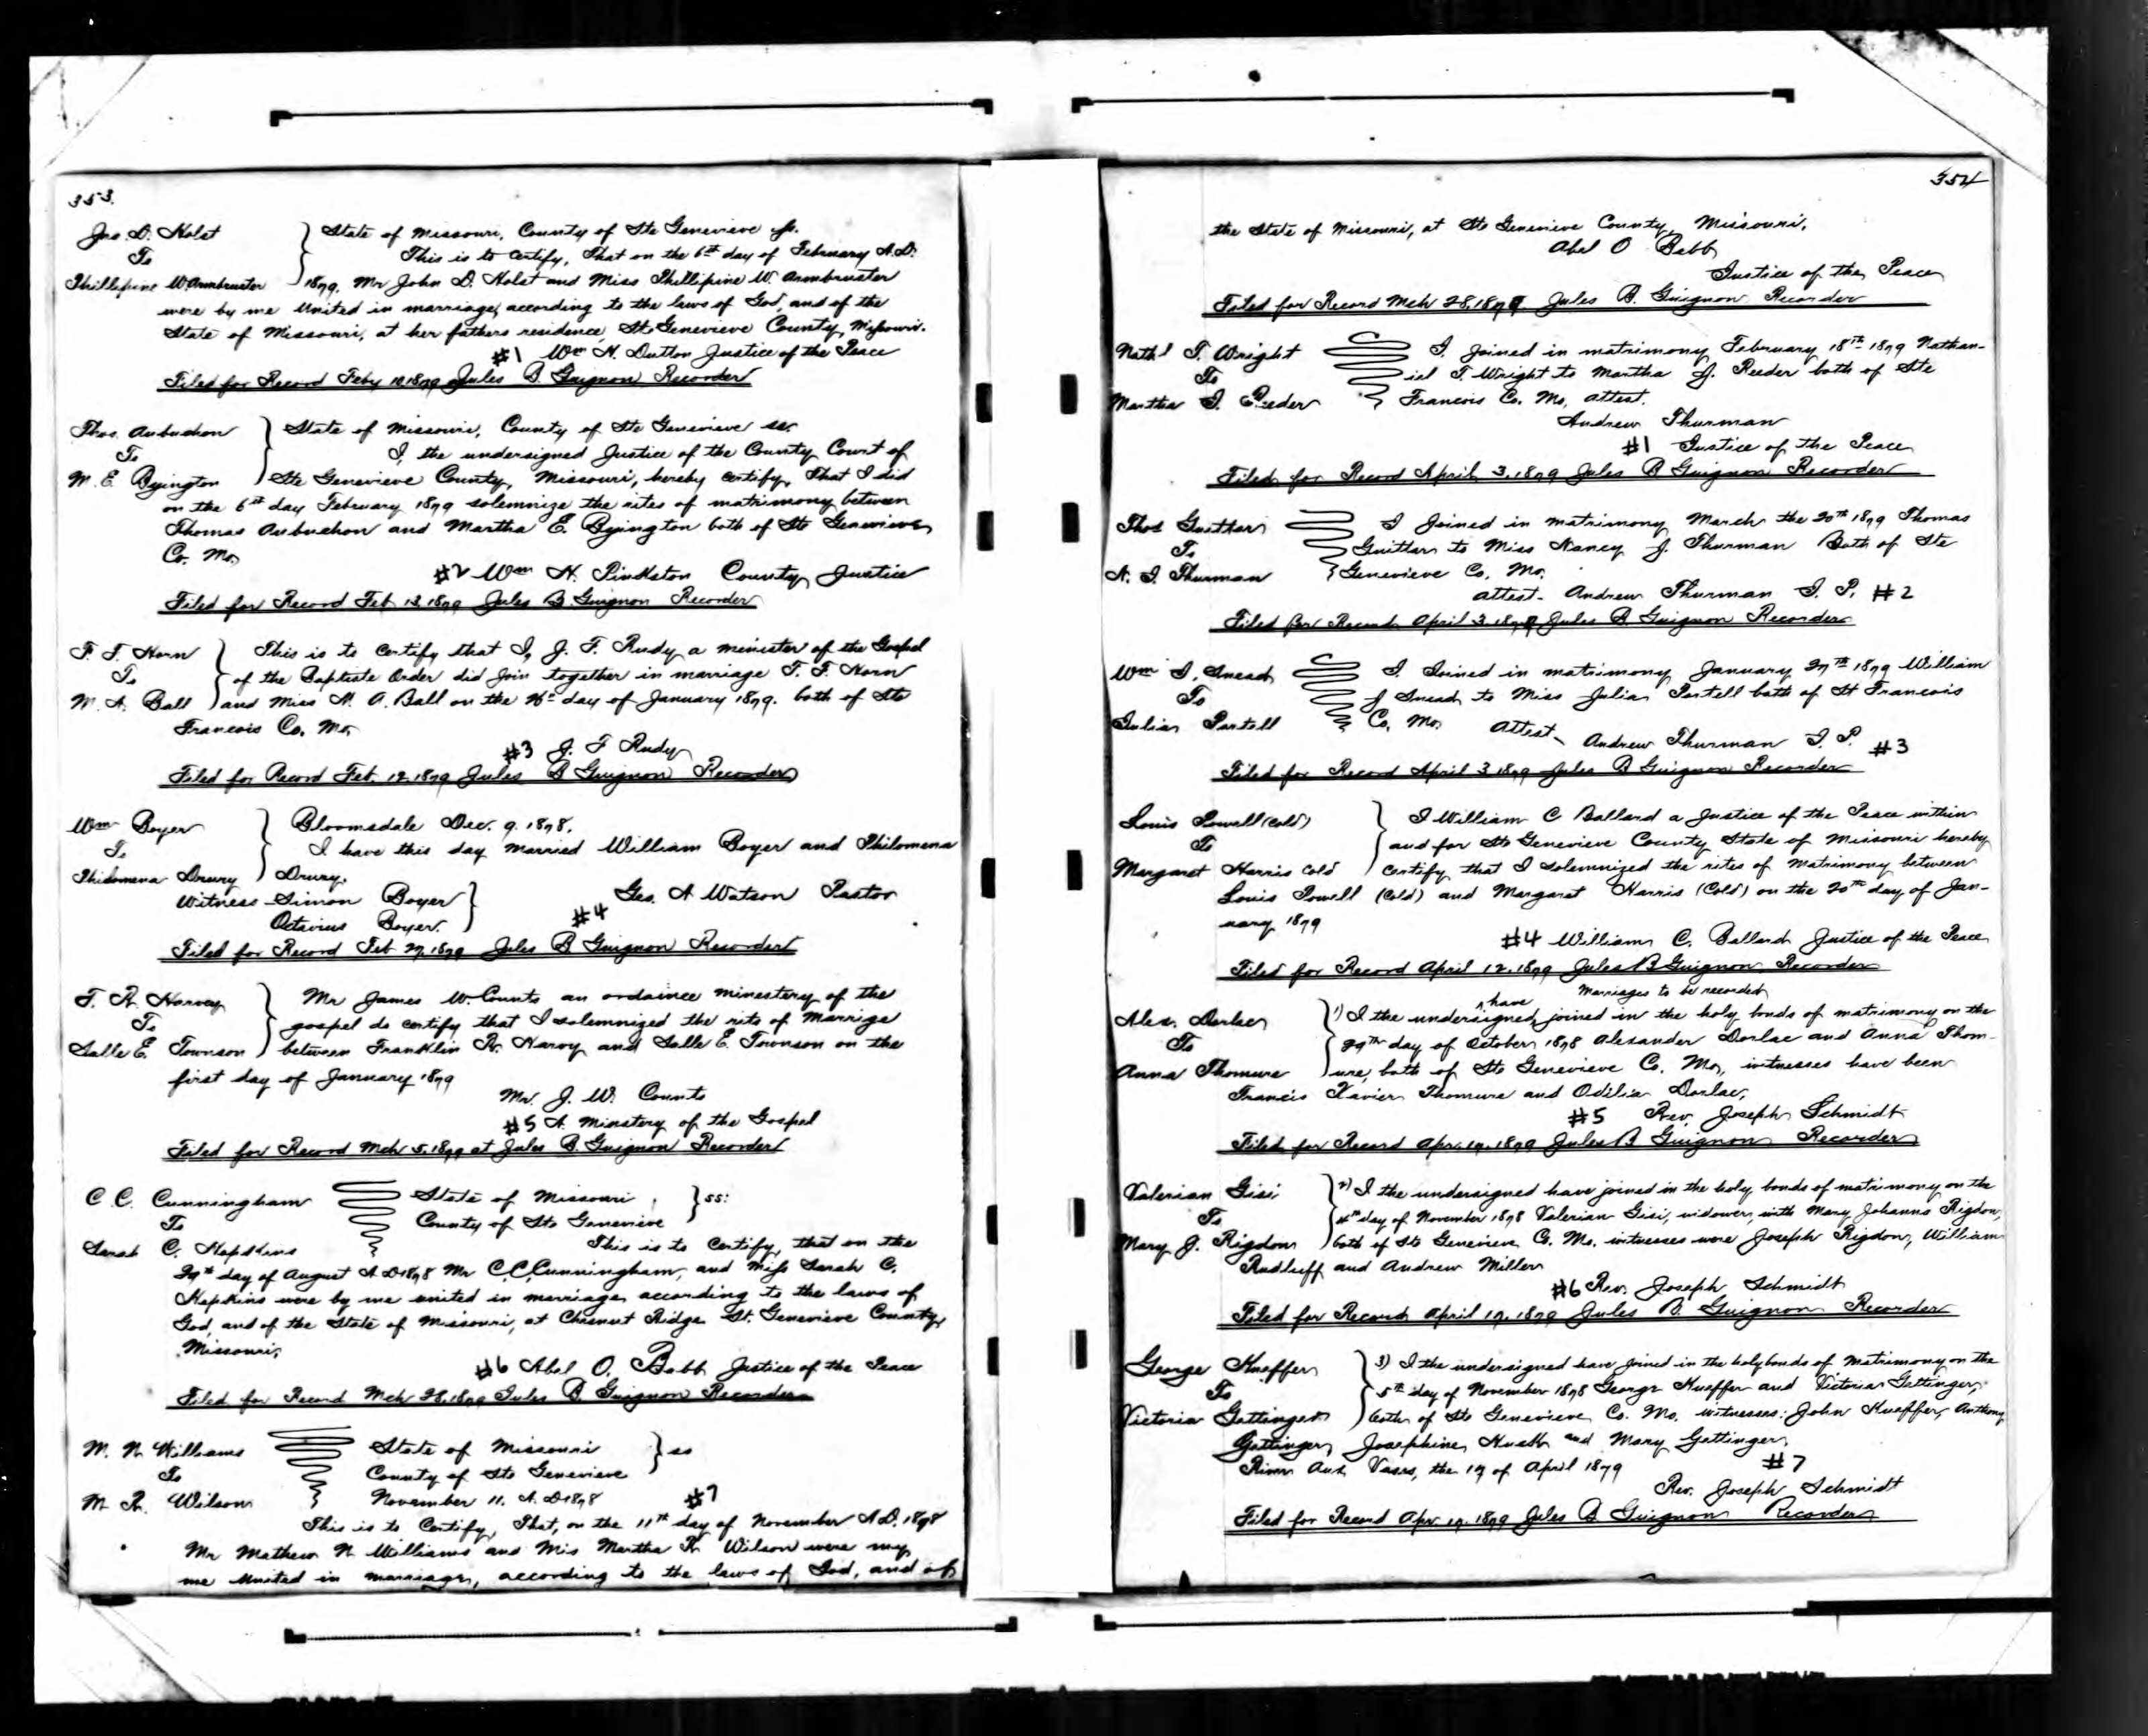 353.
Jno. D. Holst } State of Missouri, County of Ste Genevieve ss.
To This is to certify, That on the 6th day of February A.D.
Phillipine W. Armbruster 1879. Mr John D. Holst and Miss Phillipine W. Armbruster
were by me United in marriage, according to the laws of God, and of the
State of Missouri, at her fathers residence, Ste Genevieve County, Missouri.
#1 Wm N. Dutton Justice of the Peace
Filed for Record Feby 10 1879 Jules B. Guignon Recorder
Thos. Aubuchon } State of Missouri, County of Ste Genevieve ss.
To I, the undersigned Justice of the County Court of
M. E. Byington Ste Genevieve County, Missouri, hereby certify, That I did
on the 6th day February 1879 solemnize the rites of matrimony between
Thomas Aubuchon and Martha E. Byington both of Ste Genevieve
Co. Mo.
#2 Wm H. Pinkston County Justice
Filed for Record Feb 12. 1879 Jules B. Guignon Recorder
F. T. Horn } This is to certify that I, J. F. Rudy a minister of the Gospel
To of the Baptiste Order did join together in marriage F. T. Horn
M. A. Ball and Miss M. A. Ball on the 26th day of January 1879. both of Ste
Francois Co. Mo.
#3 J. F Rudy
Filed for Record Feb. 12. 1879 Jules B Guignon Recorder
Wm Boyer } Bloomsdale Dec. 9. 1878.
To I have this day married William Boyer and Philomena
Philomena Drury Drury.
Witness Simon Boyer } Geo. A Watson Pastor
Octavius Boyer. #4
Filed for Record Feb 27. 1879 Jules B Guignon Recorder
F. R. Harvey } Mr James W. Counts an ordaince minestery of the
To gospel do certify that I solemnized the rits of Marrige
Salle E. Townson between Franklin R. Harvy and Salle E. Townson on the
first day of January 1879
Mr. J. W. Counts
#5 A. Minstery of the Gospel
Filed for Record Mch 5. 1879 at Jules B. Guignon Recorder
C. C. Cunningham State of Missouri } ss:
To County of Ste Genevieve
Sarah C. Hopkins This is to certify, that on the
29th day of August A.D 1878 Mr C.C. Cunningham, and Miss Sarah C.
Hopkins were by me united in marriage, according to the laws of
God, and of the State of Missouri, at Chesnut Ridge St. Genevieve County,
Missouri,
#6 Abel O. Bobb Justice of the Peace
Filed for Record Mch 28, 1879 Jules B. Guignon Recorder
M. N. Williams State of Missouri } ss
To County of Ste Genevieve
M. R. Wilson November 11. A. D 1878 #7
This is to Certify, That, on the 11th day of November A.D. 1878
Mr Mathew N Williams and Mis Martha R. Wilson were my
me United in marriage, according to the laws of God, and of
354
the State of Missouri, at Ste Genevieve County, Missouri,
Abel O Bobb
Justice of the Peace
Filed for Record Mch 28, 1879 Jules B. Guignon Recorder
Nathl T. Wright I, joined in matrimony February 18th 1879 Nathan-
To iel T. Wright to Martha J. Reeder both of Ste
Martha J. Reeder Francois Co. Mo, attest.
Andrew Thurman
#1 Justice of the Peace
Filed for Record April 3. 1879 Jules B Guignon Recorder
Thos Guittar I joined in matrimony March the 20th 1879 Thomas
To Guittar to Miss Nancy J. Thurman Both of Ste
N. J. Thurman Genevieve Co, Mo.
attest. Andrew Thurman J. P. #2
Filed for Record April 3. 1879 Jules B Guignon Recorder
Wm J. Snead I. Joined in matrimony January 27th 1879 William
To J Snead to Miss Julia Partell both of St Francois
Julia Partell Co. Mo. Attest Andrew Thurman J. P. #3
Filed for Record April 3 1879 Jules B Guignon Recorder
Louis Powell (Cold) } I William C Ballard a Justice of the Peace within
To and for Ste Genevieve County State of Missouri hereby
Margaret Harris Cold certify, that I solemnized the rites of Matrimony between
Louis Powell (Cold) and Margaret Harris (Cold) on the 20th day of Jan-
uary 1879
#4 William C. Ballard Justice of the Peace
Filed for Record April 12. 1879 Jules B Guignon Recorder
Marriages to be recorded
Alex. Dorlac } 1) I the undersigned, have joined in the holy bonds of matrimony on the
To 29th day of October 1878 Alexander Dorlac and Anna Thom-
Anna Thomure ure, both of Ste Genevieve Co. Mo, witnesses have been
Francis Xavier Thomure and Odilia Dorlac,
#5 Rev. Joseph Schmidt
Filed for Record Apr. 19. 1879 Jules B Guignon Recorder
Valerian Gisi } 2) I the undersigned have joined in the holy bonds of matrimony on the
To 4th day of November 1878 Valerian Gisi, widower, with Mary Johanna Rigdon,
Mary J. Rigdon both of Ste Genevieve Co. Mo. witnesses were Joseph Rigdon, William
Rudluff and Andrew Miller
#6 Rev. Joseph Schmidt
Filed for Record April 19. 1879 Jules B. Guignon Recorder
George Hueffer } 3) I the undersigned have joined in the holy bonds of Matrimony on the
To 5th day of November 1878 George Hueffer and Victoria Gettinger,
Victoria Gettinger both of Ste Genevieve Co. Mo. witnesses: John Hueffer, Anthony
Gettinger, Josephine Huck and Mary Gettinger,
River Aux Vases, the 17 of April 1879 #7
Rev. Joseph Schmidt
Filed for Record Apr 19. 1879 Jules B Guignon Recorder